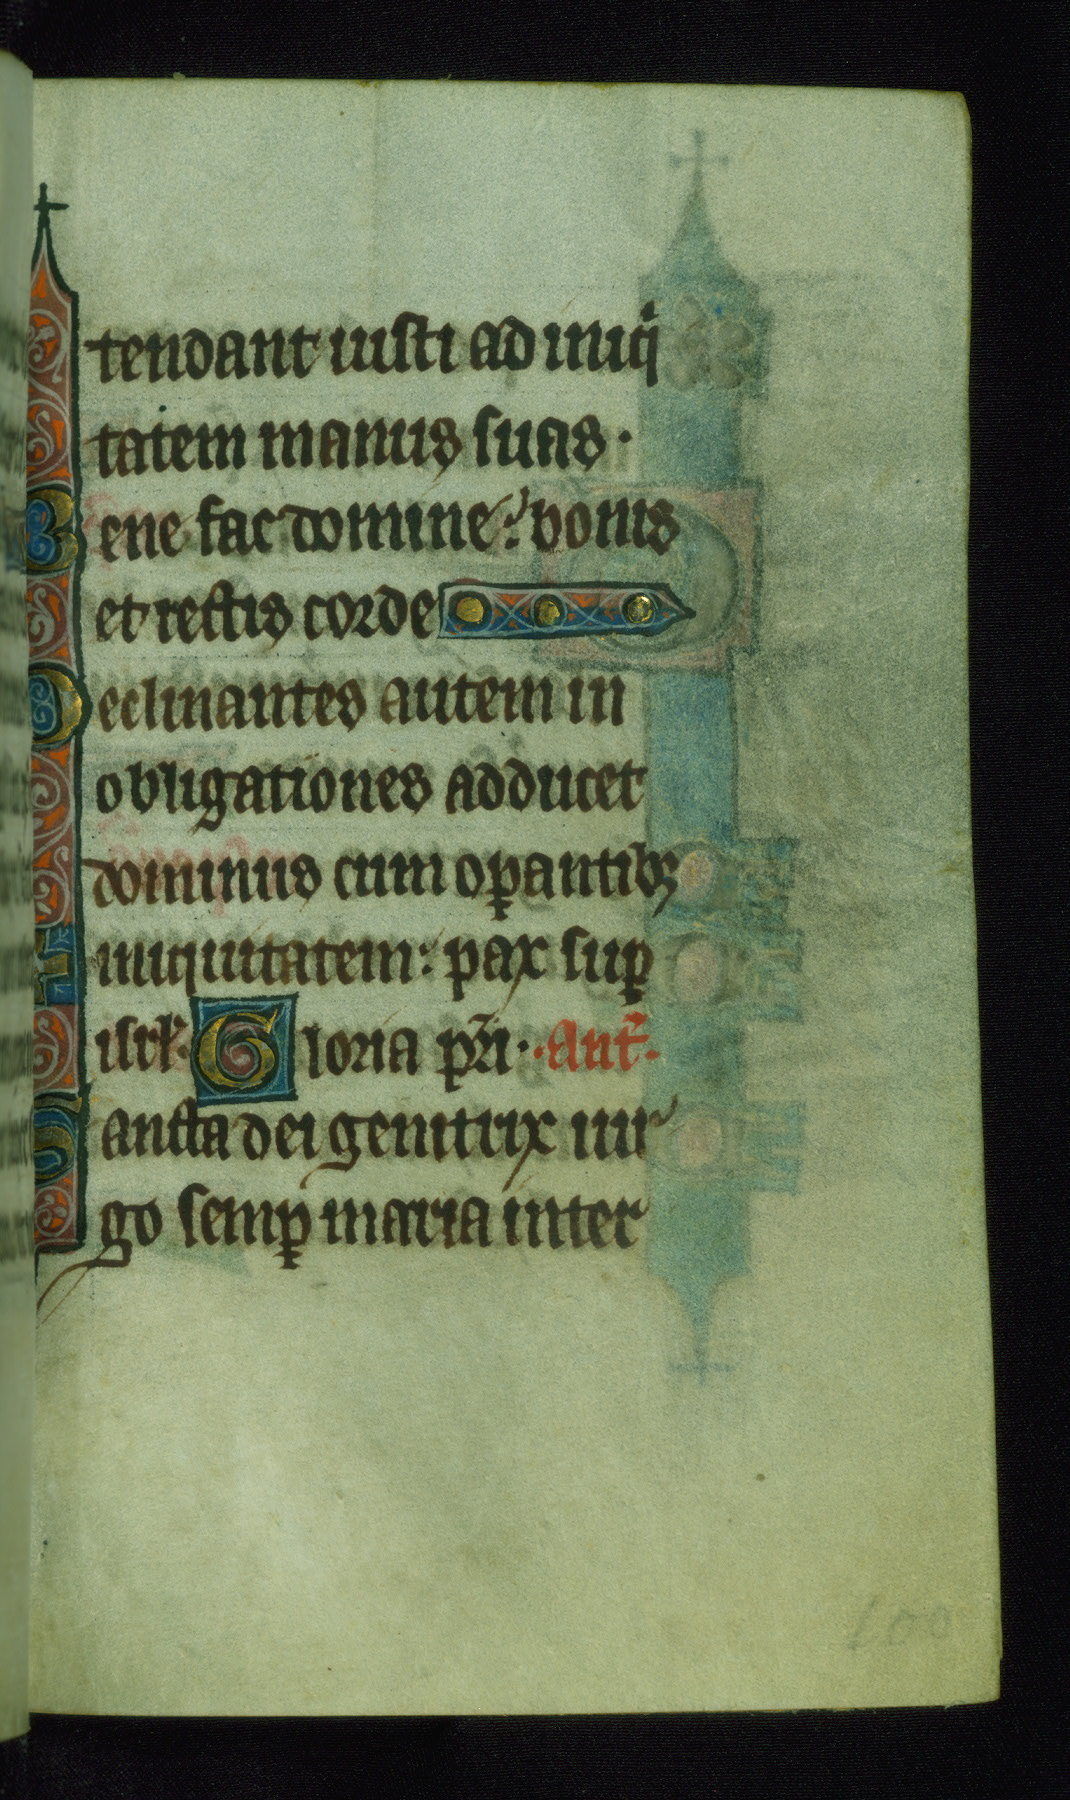 tendant iusti ad iniq̇
tatem manus suas·
Bene fac domine: bonis
et rectis corde
Declinantes autem in
obligationes adducet
dominus cum oꝑantibꝫ
iniquitatem: pax suꝑ
isrl̃. Gloria pr̃i. Ant̃.
Sancta dei genitrix uir
go semꝑ maria inter
100